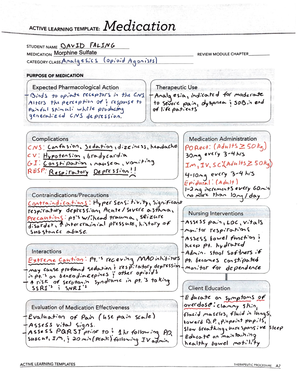 ACTIVE LEARNING TEMPLATE: Medication
STUDENT NAME DAVID FALING
MEDICATION Morphine Sulfate
REVIEW MODULE CHAPTER
CATEGORY CLASS Analgesics (Opioid Agonists)
PURPOSE OF MEDICATION
Expected Pharmacological Action
- Binds to opiate receptors in the CNS
Alters the perception of & response to
painful stimuli while producing
generalized CNS depression.
Therapeutic Use
- Analgesia, indicated for moderate
to severe pain, dyspnea & SOB in end
of life patients
Complications
CNS: Confusion, Sedation, dizziness, headache
CV: Hypotension, bradycardia
GI: Constipation, nausea, vomiting
RESP: Respiratory Depression!!
Medication Administration
PO/Rect: (Adults ≥ 50kg)
30mg every 3-4 hrs
Im, IV, SC (Adults ≥ 50kg)
4-10mg every 3-4 hrs
Epidural: (Adult)
1-2mg increments every 60min
no more than 10mg/day
Contraindications/Precautions
Contraindications: Hypersensitivity, significant
respiratory depression, Acute/severe asthma,
Precautions: pt's w/ head trauma, seizure
disorder, ↑ intercranial pressure, history of
substance abuse
Nursing Interventions
- Assess pain, LOC, vitals
monitor respirations
- Assess bowel function &
keep pt. hydrated
- Admin. stool softeners if
pt. becomes constipated
- monitor for dependence
Interactions
- Extreme Caution: Pt.'s receiving MAO inhibitors
may cause profound sedation & respiratory depression
in pt.'s on benzodiazepines & other opioids
- ↑ risk of serotonin syndrome in pt.'s taking
SSRI's & SNRI's
Evaluation of Medication Effectiveness
- Evaluation of Pain (use pain scale)
- Assess vital signs.
- Assess PQRST prior to & 1 hr following PO,
SubQ, IM, & 20 min (peak) following IV admin
Client Education
- Educate on symptoms of
overdose: clammy skin,
low BP, pinpoint pupils,
slow breathing, sleep
- Educate on maintaining
healthy bowel motility
ACTIVE LEARNING TEMPLATES
THERAPEUTIC PROCEDURE A7